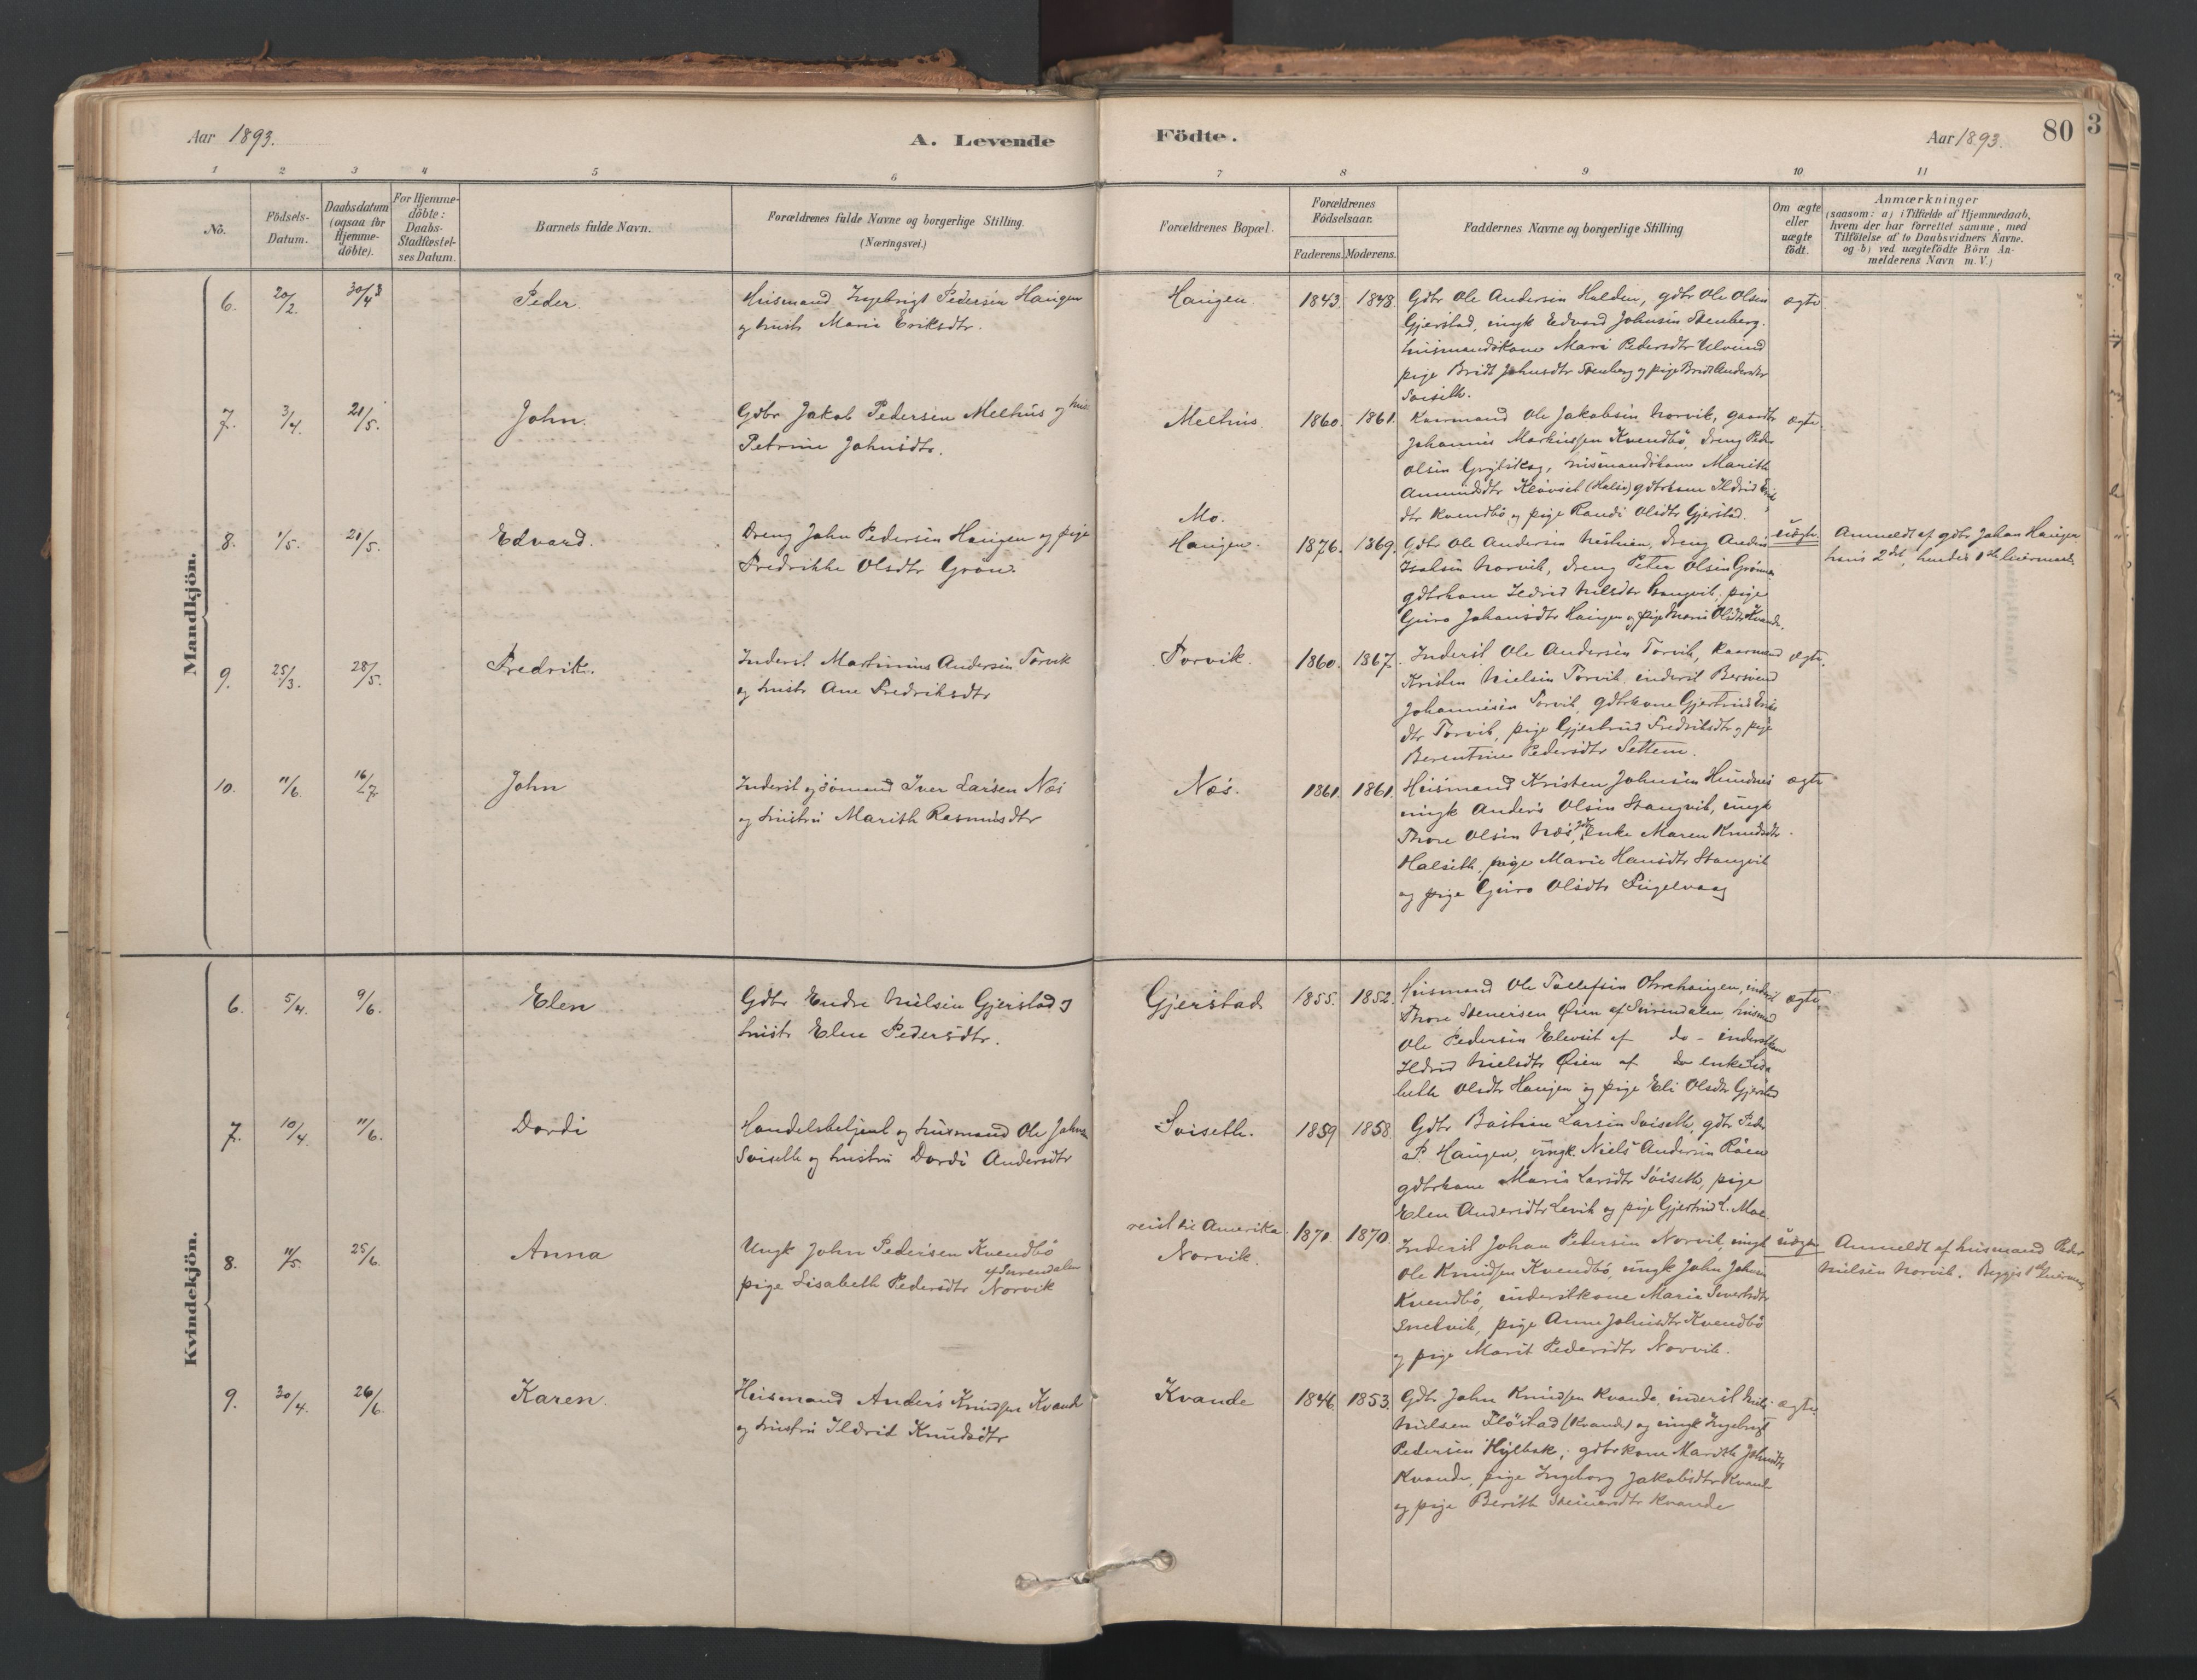 Aar 1893.
A. Levende
Födte.
Aar 1893.
80
3
1 2 3 4 5 6 7 8 9 10 11
No.
Födsels-Datum.
Daabsdatum (ogsaa for Hjemme-döbte).
For Hjemme-döbte: Daabs-Stadfæstel-ses Datum.
Barnets fulde Navn.
Forældrenes fulde Navne og borgerlige Stilling. (Næringsvei.)
Forældrenes Bopæl.
Forældrenes Födselsaar.
Faderens. Moderens.
Faddernes Navne og borgerlige Stilling
Om ægte eller uægte födt.
Anmærkninger
(saasom: a) i Tilfælde af Hjemmedaab,
hvem der har forrettet samme, med
Tilföielse af to Daabsvidners Navne.
og b) ved uægtefödte Börn An-
melderens Navn m. V.)
Mandkjön.
6. 20/2. 30/4 Peder.
Husmand Ingebrigt Pedersen Haugen
og hustr Marie Eriksdtr.
Haugen. 1843. 1848.
Gdbr Ole Andersen Halden, gdbr Ole Olsen
Gjerstad, ungk Edvard Johnsen Stenberg.
husmandskone Mari Pedersdtr Ulvund
pige Bridt Johnsdtr Stenberg og pige Bridt Andersdtr
Sviseth.
ægte
7. 3/4. 21/5. John.
Gdbr Jakob Pedersen Melhus og hus
Petrine Johnsdtr.
Melhus. 1860. 1861.
Kaarmand Ole Jakobsen Norvik, gaardbr
Johannes Markussen Kvendbö, dreng Peder
Olsen, husmandskone Marith
Amundsdtr Klövset (Halse) gdbrkone Ildrid
dtr Kvendbö og pige Randi Olsdtr Gjerstad.
ægte.
8. 1/5. 21/5. Edvard.
Dreng John Pedersen Haugen og pige
Fredrikke Olsdtr Grön.
Mo.
Haugen. 1876. 1869.
Gdbr Ole Andersen, dreng Anders
Norvik, dreng Peter Olsen
gdbrkone Ildrid Nilsdtr Stangvik, pige
Guro Johansdtr Haugen og pige Marie Olsdtr Kvande.
uægte
Anmeldt af gdbr Johan Haugen
hans 2det, hendes 1ste leiermaal.
9. 25/3. 28/5. Fredrik.
Inderst Martinus Andersen Torvik
og hustr Ane Fredriksdtr
Torvik. 1860. 1867.
Inderst Ole Andersen Torvik, kaarmand
Kristen Nielsen Torvik, inderst Bersvend
Johannesen Torvik, gdbrkone Gjertrud
dtr Torvik, pige Gjertrud Fredriksdtr og pige
Berentine Pedersdtr Settem.
ægte.
10. 11/6. 16/7. John
Inderst og sömand Iver Larsen Næs
og hustru Marith Rasmusdtr
Næs. 1861. 1861.
Husmand Kristen Johnsen Hundnes
ungk Anders Olsen Stangvik, ungk
Thore Olsen Næs, enke Maren Knudsdtr.
Halseth, pige Marie Hansdtr Stangvik
og pige Guro Olsdtr Fugelvaag
ægte
Kvindekjön.
6. 5/4. 9/6. Elen
Gdbr Endre Nielsen Gjerstad og
hustr Elen Pedersdtr.
Gjerstad 1855. 1852.
Husmand Ole Tollefsen Ohrehaugen, inderst
Thore Stenersen Öien af Surendalen, husmand
Ole Pedersen af do - inderstkone
Ildrid Nielsdtr Öien af do enke Lisa
beth Olsdtr Haugen og pige Eli Olsdtr Gjerstad
ægte
7. 10/4. 11/6. Dordi
Handelsbetjent og husmand Ole Johnsen
Sviseth og hustru Dordi Andersdtr
Sviseth. 1859 1858.
Gdbr Bastian Larsen Sviseth, gdbr Peder
P. Haugen, ungk. Niels Andersen Röen
gdbrkone Marie Larsdtr Sviseth, pige
Elen Andersdtr Levik og pige Gjertrud L. Moe.
8. 11/5. 25/6. Anna
Ungk John Pedersen Kvendbö
af Surendalen
pige Lisabeth Pedersdtr Norvik
reist til Amerika
Norvik. 1870. 1870.
Inderst Johan Pedersen Norvik, ungk
Ole Knudsen Kvendbö, ungk John Johnsen
Kvendbö, inderstkone Marie Sivertsdtr
Snekvik, pige Anne Johnsdtr Kvendbö
og pige Marit Pedersdtr Norvik.
uægte
Anmeldt af husmand Peder
Nielsen Norvik. Begges 1ste leiermaal
9. 30/4. 26/6. Karen.
Husmand Anders Knudsen Kvande
og hustru Ildrid Knudsdtr
Kvande 1846. 1853.
Gdbr John Knudsen Kvande, inderst Nils
Nielsen Flöstad (Kvande) og ungk Ingebrigt
Pedersen Hylbak, gdbrkone Marith Johnsdtr
Kvande, pige Ingeborg Jakobsdtr Kvande
og pige Berith Steinarsdtr Kvande
ægte.